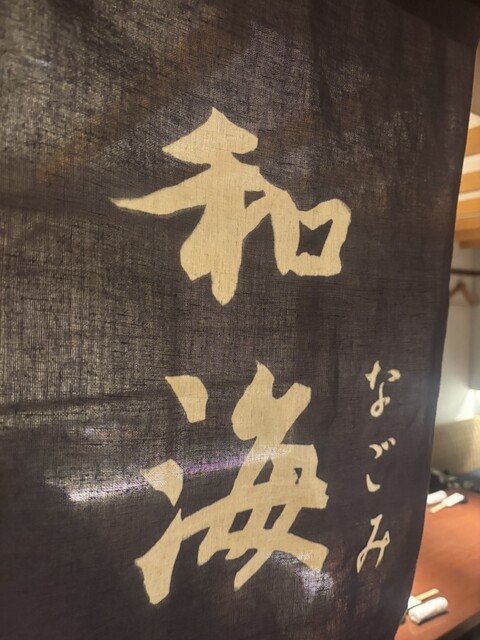 和海
なごみ